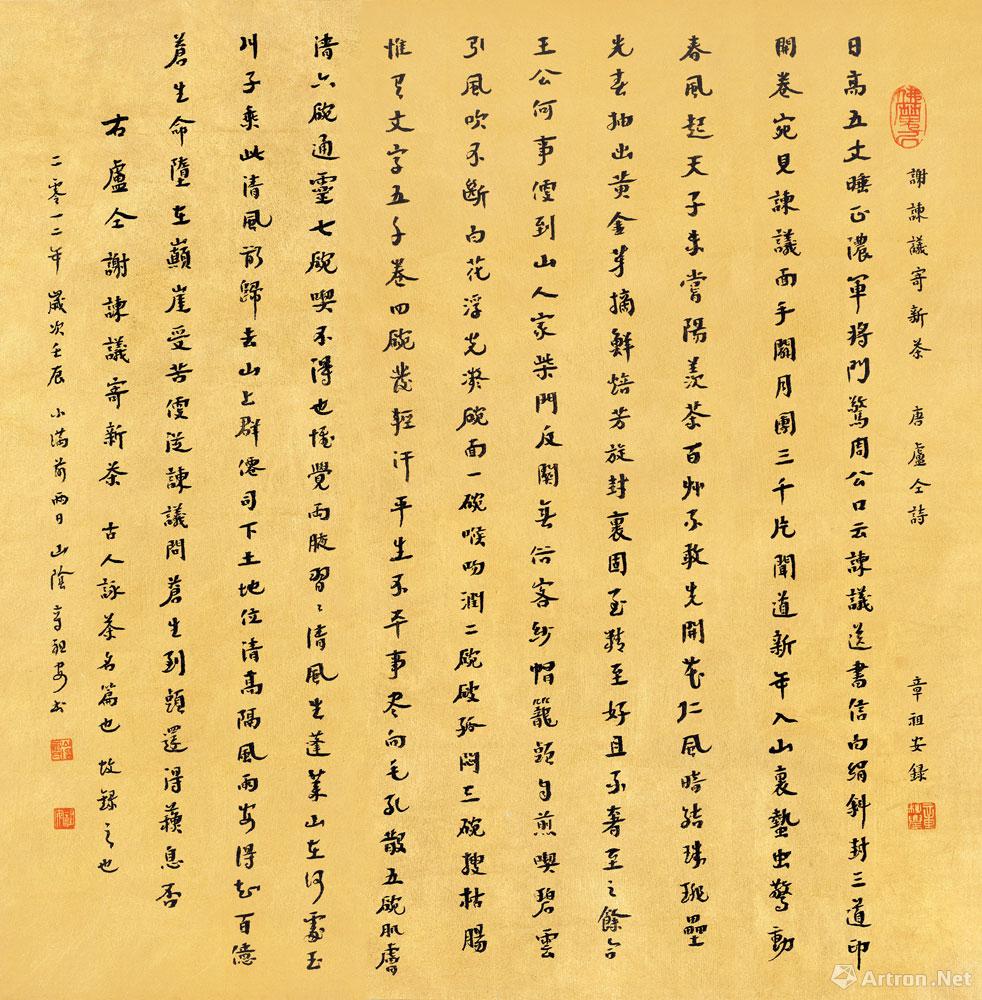 謝諫議寄新茶 唐盧仝詩 章祖安録
日高五丈睡正濃軍將門驚周公口云諫議送書信白絹斜封三道印
開卷宛見諫議面手閱月團三千片聞道新年入山裏蟄蟲驚動
春風起天子未嘗陽羨茶百艸不敢先開花仁風暗結珠琲壘
先春抽出黄金芽摘鮮焙芳旋封裹固至精至好且不奢至之餘合
王公何事便到山人家柴門反關無俗客紗帽籠頭自煎喫碧雲
引風吹不斷白花浮光凝碗面一碗喉吻潤二碗破孤悶三碗搜枯腸
惟有文字五千卷四碗發輕汗平生不平事尽向毛孔散五碗肌膚
清六碗通靈七碗喫不得也惟覺兩腋習〻清風生蓬萊山在何處玉
川子乘此清風欲歸去山上群僊司下土地位清高隔風雨安得知百億
蒼生命墮在巔崖受苦便從諫議問蒼生到頭還得蘇息否
右盧仝謝諫議寄新茶 古人詠茶名篇也 故録之也
二零一二年 歲次壬辰 小滿前兩日 山陰章祖安书
Artron.Net